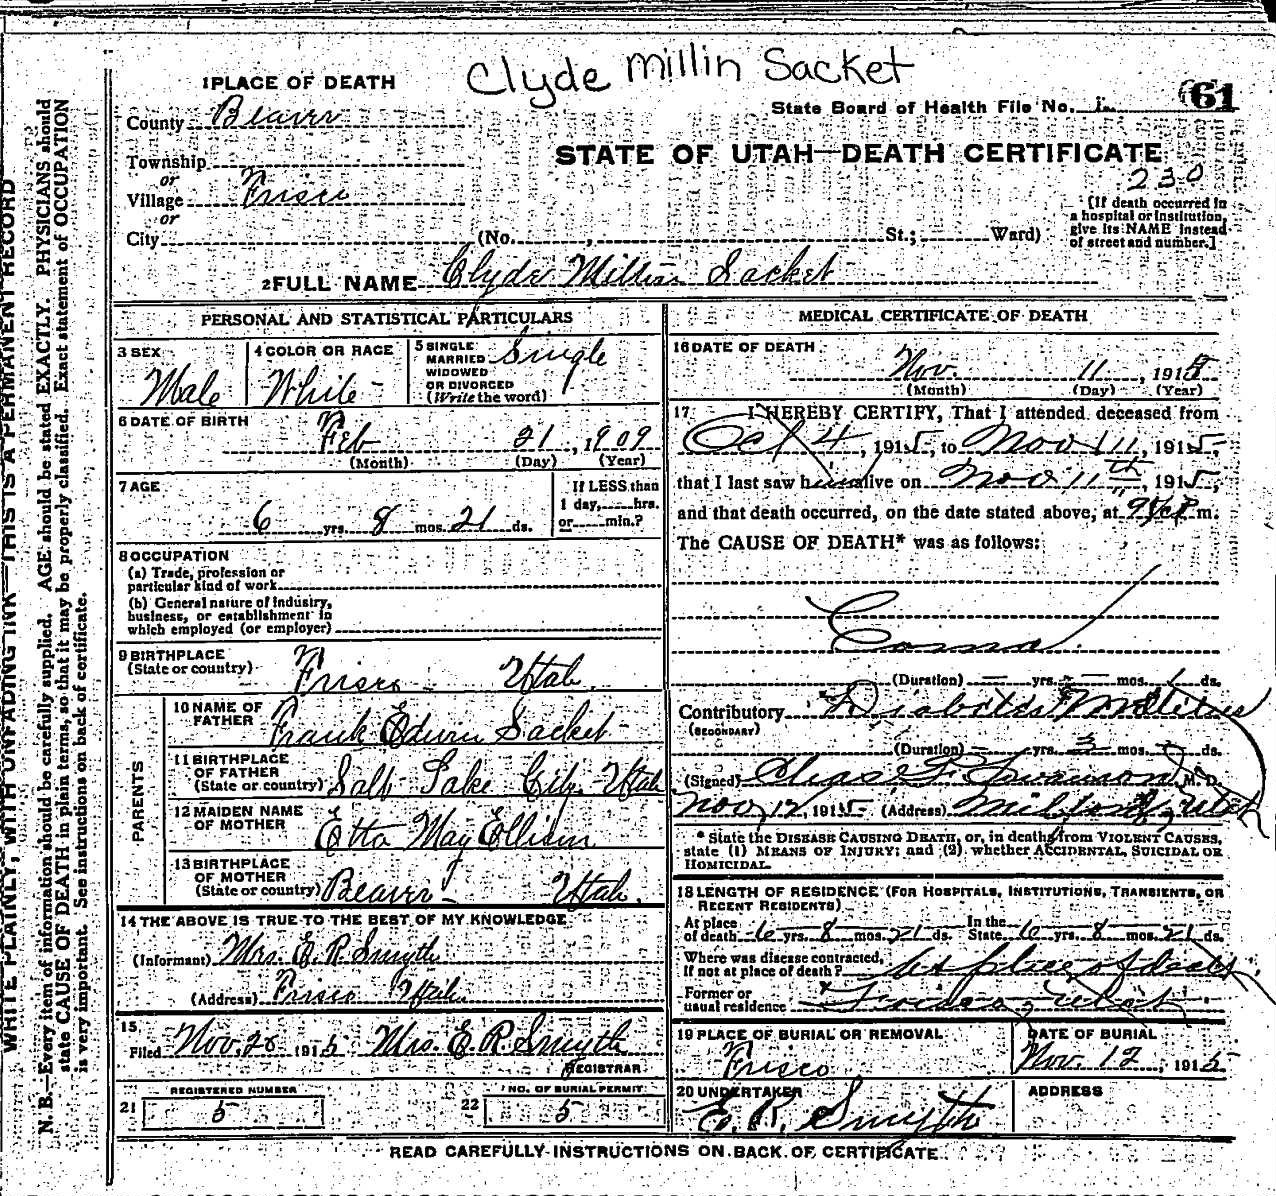 Clyde Millin Sacket
1 PLACE OF DEATH
State Board of Health File No. 61
County Beaver
STATE OF UTAH—DEATH CERTIFICATE
230
Township
or
Village Frisco
or
City (No. , St.; Ward)
[If death occurred in
a hospital or institution,
give its NAME instead
of street and number.]
2 FULL NAME Clyde Millin Sacket
PERSONAL AND STATISTICAL PARTICULARS
3 SEX
Male
4 COLOR OR RACE
White
5 SINGLE
MARRIED
WIDOWED
OR DIVORCED
(Write the word)
Single
6 DATE OF BIRTH
Feb 21, 1909
(Month) (Day) (Year)
7 AGE
6 yrs. 8 mos. 21 ds.
If LESS than
1 day, hrs.
or min.?
8 OCCUPATION
(a) Trade, profession or
particular kind of work
(b) General nature of industry,
business, or establishment in
which employed (or employer)
9 BIRTHPLACE
(State or country)
Frisco - Utah.
PARENTS
10 NAME OF
FATHER
Frank Edwin Sacket
11 BIRTHPLACE
OF FATHER
(State or country) Salt Lake City, Utah
12 MAIDEN NAME
OF MOTHER
Etta May
13 BIRTHPLACE
OF MOTHER
(State or country) Beaver Utah.
14 THE ABOVE IS TRUE TO THE BEST OF MY KNOWLEDGE
(Informant) Mrs. E. R. Smyth
(Address) Frisco Utah.
15
Filed Nov. 20 1915 Mrs. E. R. Smyth
REGISTRAR
REGISTERED NUMBER
21 5
NO. OF BURIAL PERMIT
22 5
MEDICAL CERTIFICATE OF DEATH
16 DATE OF DEATH
Nov. 11, 1915
(Month) (Day) (Year)
17 I HEREBY CERTIFY, That I attended deceased from
Oct 4, 1915, to Nov 11, 1915,
that I last saw him alive on Nov 11th, 1915,
and that death occurred, on the date stated above, at m.
The CAUSE OF DEATH* was as follows:
Coma
(Duration) — yrs. — mos. 1 ds.
Contributory Diabetes Mellitus
(SECONDARY)
(Duration) — yrs. 3 mos. ds.
(Signed) M. D.
Nov 12, 1915 (Address) Milford, Utah
* State the DISEASE CAUSING DEATH, or, in deaths from VIOLENT CAUSES,
state (1) MEANS OF INJURY; and (2) whether ACCIDENTAL, SUICIDAL OR
HOMICIDAL.
18 LENGTH OF RESIDENCE (FOR HOSPITALS, INSTITUTIONS, TRANSIENTS, OR
RECENT RESIDENTS)
At place
of death 6 yrs. 8 mos. 21 ds. In the
State 6 yrs. 8 mos. 21 ds.
Where was disease contracted,
if not at place of death? At place of death
Former or
usual residence Frisco, Utah
19 PLACE OF BURIAL OR REMOVAL
Frisco
DATE OF BURIAL
Nov. 12, 1915
20 UNDERTAKER
E. R. Smyth
ADDRESS
READ CAREFULLY INSTRUCTIONS ON BACK OF CERTIFICATE
WRITE PLAINLY, WITH UNFADING INK—THIS IS A PERMANENT RECORD
N. B.—Every item of information should be carefully supplied. AGE should be stated EXACTLY. PHYSICIANS should
state CAUSE OF DEATH in plain terms, so that it may be properly classified. Exact statement of OCCUPATION
is very important. See instructions on back of certificate.